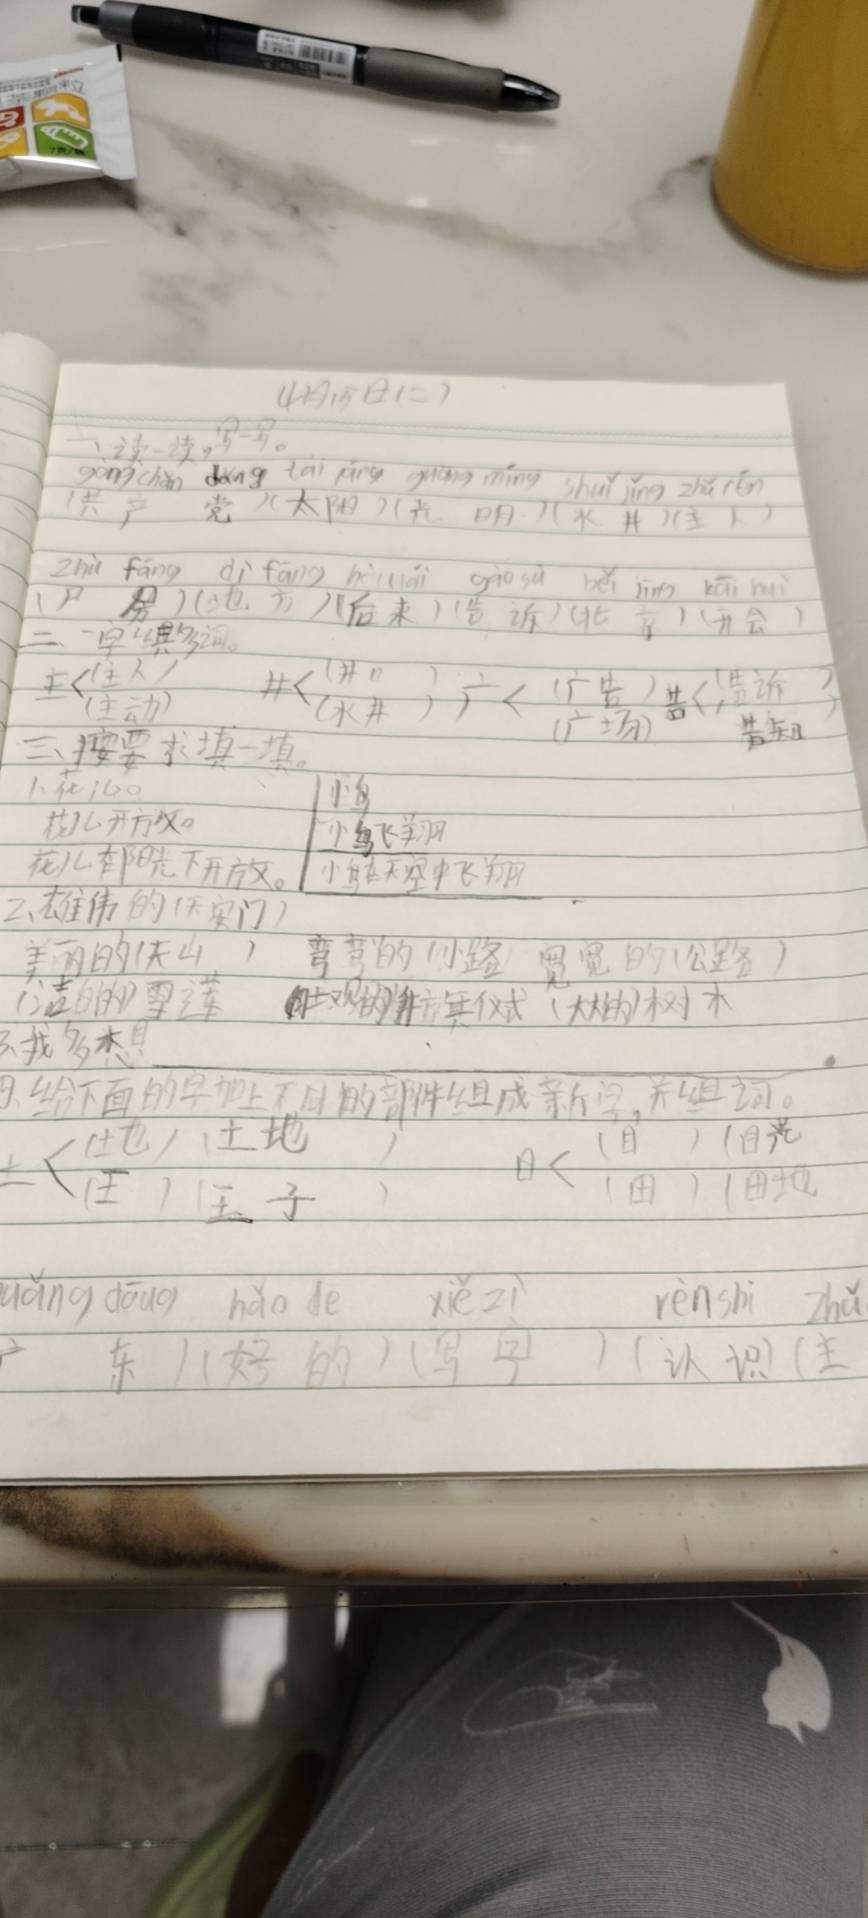 4月15日(二)
一、读一读,写一写。
gòng chǎn dǎng tài yáng guāng míng shuǐ jǐng zhǔ rén
(共产党)(太阳)(光明)(水井)(主人)
zhù fáng dì fāng hòu lái gào sù běi jīng kāi huì
(户房)(地方)(后来)(告诉)(北京)(开会)
二、一字组多词。
主<(主人) 井<(井口) 广<(广告) 告<(告诉)
(主动) (水井) (广场) 告知
三、按要求填一填。
1、花儿。 小鸟
花儿开放。 小鸟飞翔
花儿在阳光下开放。 小鸟在天空中飞翔
2、雄伟的(天安门)
美丽的(天山) 弯弯的(小路) 宽宽的(公路)
(洁白的)雪莲 壮观的升旗仪式 (大大的)树木
3、我多想
四、给下面的字加上不同的部件组成新字,并组词。
土<(地)(土地) 日<(目)(目光
(王)(王子) (田)(田地
uǎng dōng hǎo de xiě zì rèn shi zhǔ
广东)(好的)(写字)(认识)(主